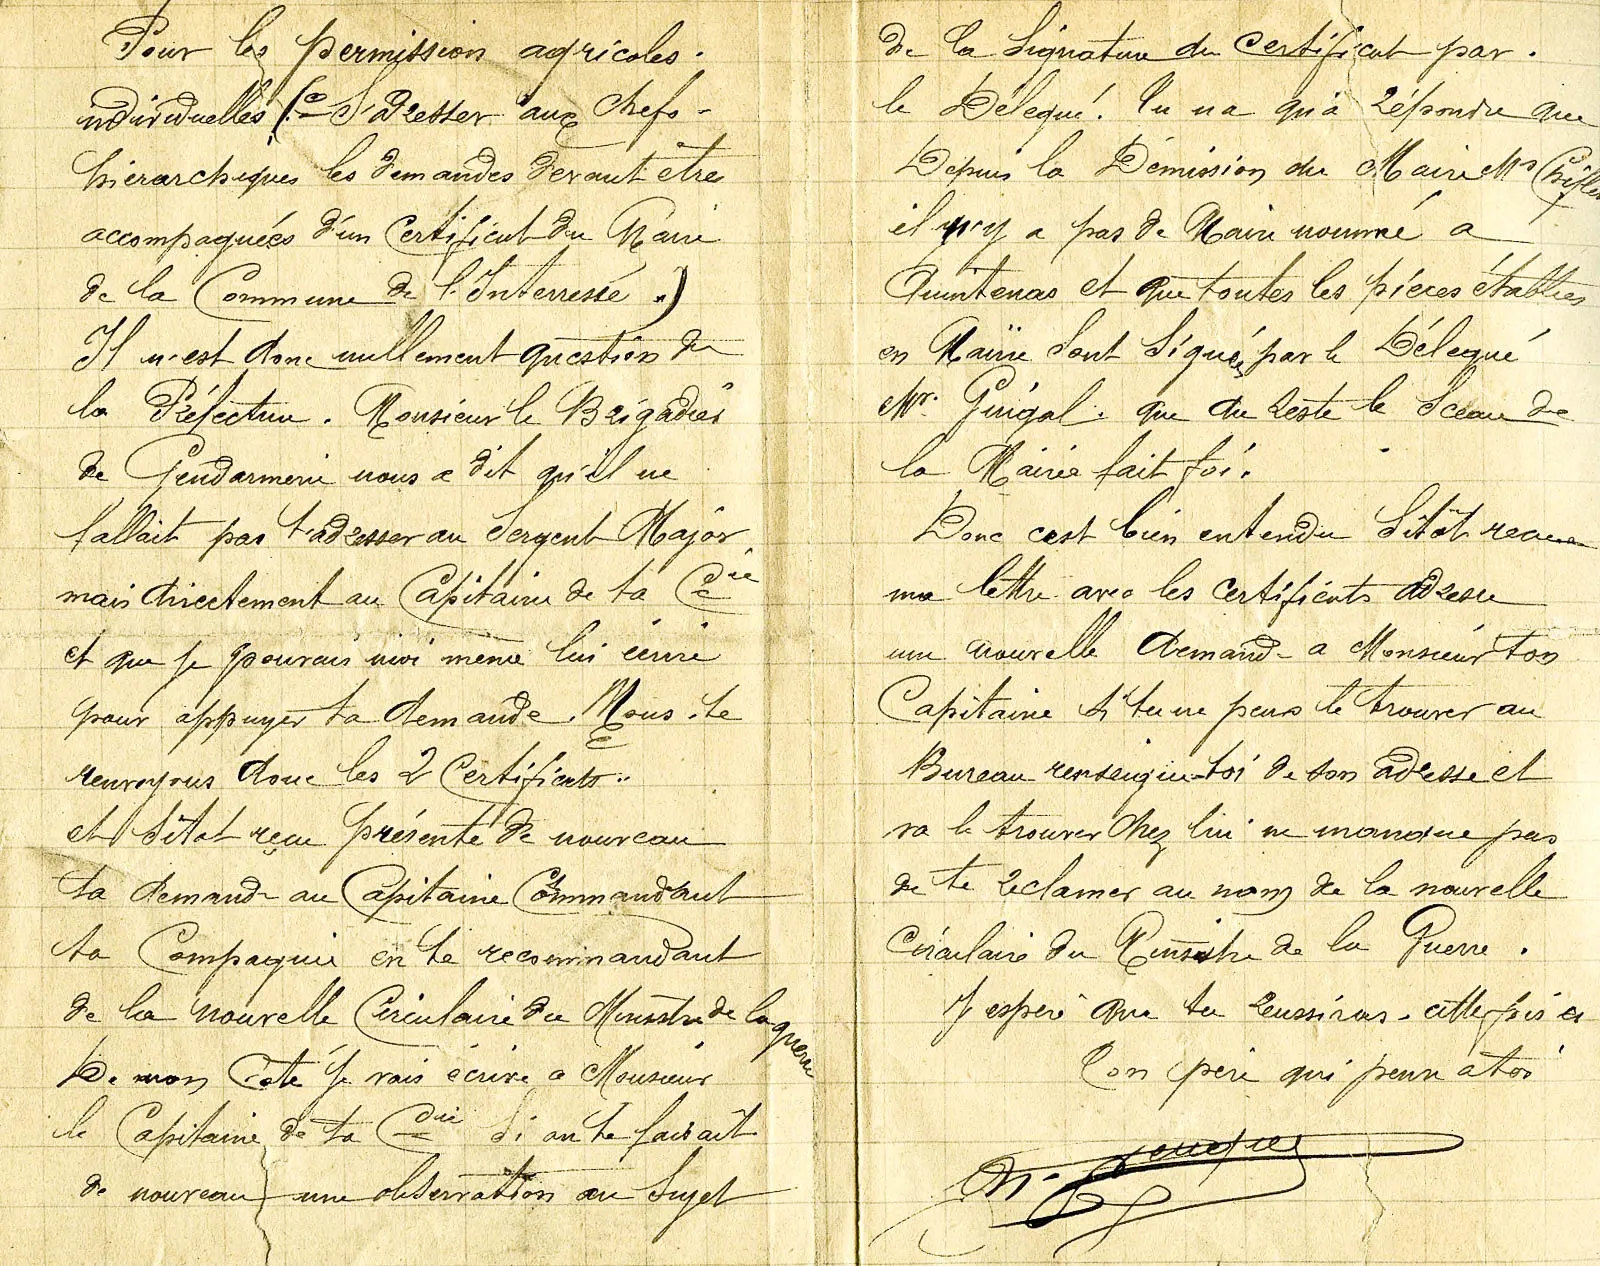 Pour les permission agricoles.
individuelles (Ce S'adresser aux Chefs-
hierarchiques les demandes devant être
accompagnées d'un Certificat du Maire
de la Commune de l'Interressé.)
Il n'est donc nullement question de
la Préfecture. Monsieur le Brigadier
de Gendarmerie nous a dit qu'il ne
fallait pas t'adresser au Sergent Major
mais directement au Capitaine de ta Cie
et que je pouvais moi même lui écrire
pour appuyer ta demande. Nous te
renvoyons donc les 2 Certificats..
et Sitot reçu présente de nouveau
ta demande au Capitaine Commandant
ta Compagnie en te recommandant
de la nouvelle Circulaire du Ministre de la guerre
De mon Côté je vais écrire a Monsieur
le Capitaine de ta Cie Si on te faisait
de nouveau une observation au Sujet
de la Signature du Certificat par.
le Délégué. Tu na qu'à répondre que
Depuis la Démission du Maire Mr
il n'y a pas de Maire nommé a
Quintenas et que toutes les pièces établies
en Mairie Sont Signées par le Délégué
Mr. Guigal. que du reste le Sceau de
la Mairie fait foi.
Donc c'est bien entendu Sitôt reçue
ma lettre avec les certificats adresse
une nouvelle demande a Monsieur ton
Capitaine Si tu ne peus le trouver au
Bureau renseigne-toi de son adresse et
va le trouver Chez lui ne manque pas
de te réclamer au nom de la nouvelle
Circulaire du Ministre de la Guerre.
J'espère que tu réussiras cette fois ci
Ton père qui pense à toi